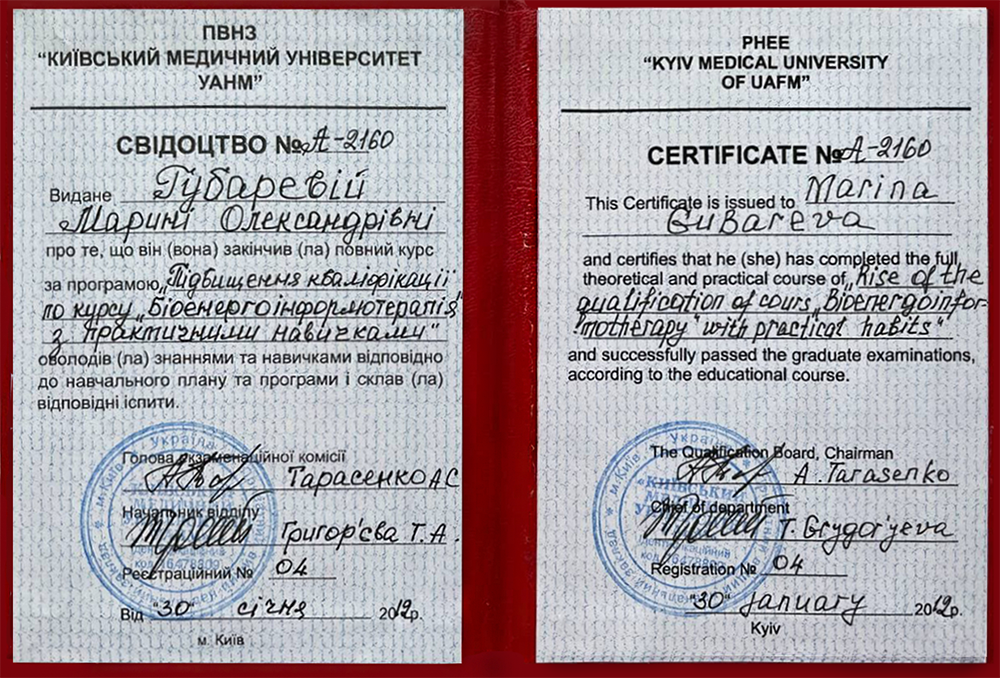 ПВНЗ
“КИЇВСЬКИЙ МЕДИЧНИЙ УНІВЕРСИТЕТ
УАНМ”
СВІДОЦТВО № А-2160
Видане Губаревій
Марині Олександрівні
про те, що він (вона) закінчив (ла) повний курс
за програмою „Підвищення кваліфікації
по курсу „Біоенергоінформотерапія
з практичними навичками“
оволодів (ла) знаннями та навичками відповідно
до навчального плану та програми і склав (ла)
відповідні іспити.
Голова екзаменаційної комісії
Тарасенко А С
Начальник відділу
Григор'єва Т. А.
Реєстраційний № 04
Від "30" січня 2012р.
м. Київ
Україна
м. Київ
PHEE
“KYIV MEDICAL UNIVERSITY
OF UAFM”
CERTIFICATE № A-2160
This Certificate is issued to Marina
Gubareva
and certifies that he (she) has completed the full
theoretical and practical course of „Rise of the
qualification of cours „Bioenergoinfor-
motherapy“ with practical habits“
and successfully passed the graduate examinations,
according to the educational course.
The Qualification Board, Chairman
A. Tarasenko
Chief of department
T. Grygor'yeva
Registration № 04
"30" january 2012р.
Kyiv
Україна
м. Київ
«КИЇВСЬКИЙ